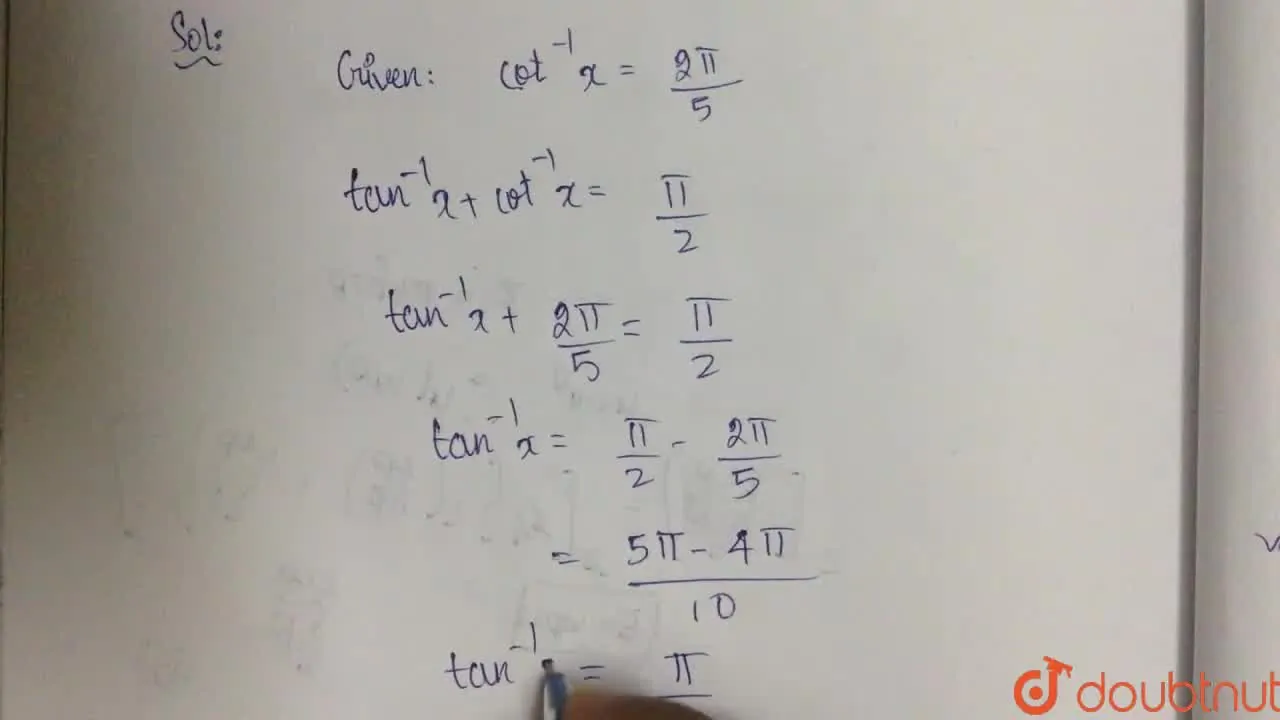 Sol:
Given: cot⁻¹x = 2π/5
tan⁻¹x + cot⁻¹x = π/2
tan⁻¹x + 2π/5 = π/2
tan⁻¹x = π/2 - 2π/5
= 5π - 4π/10
tan⁻¹ = π
doubtnut